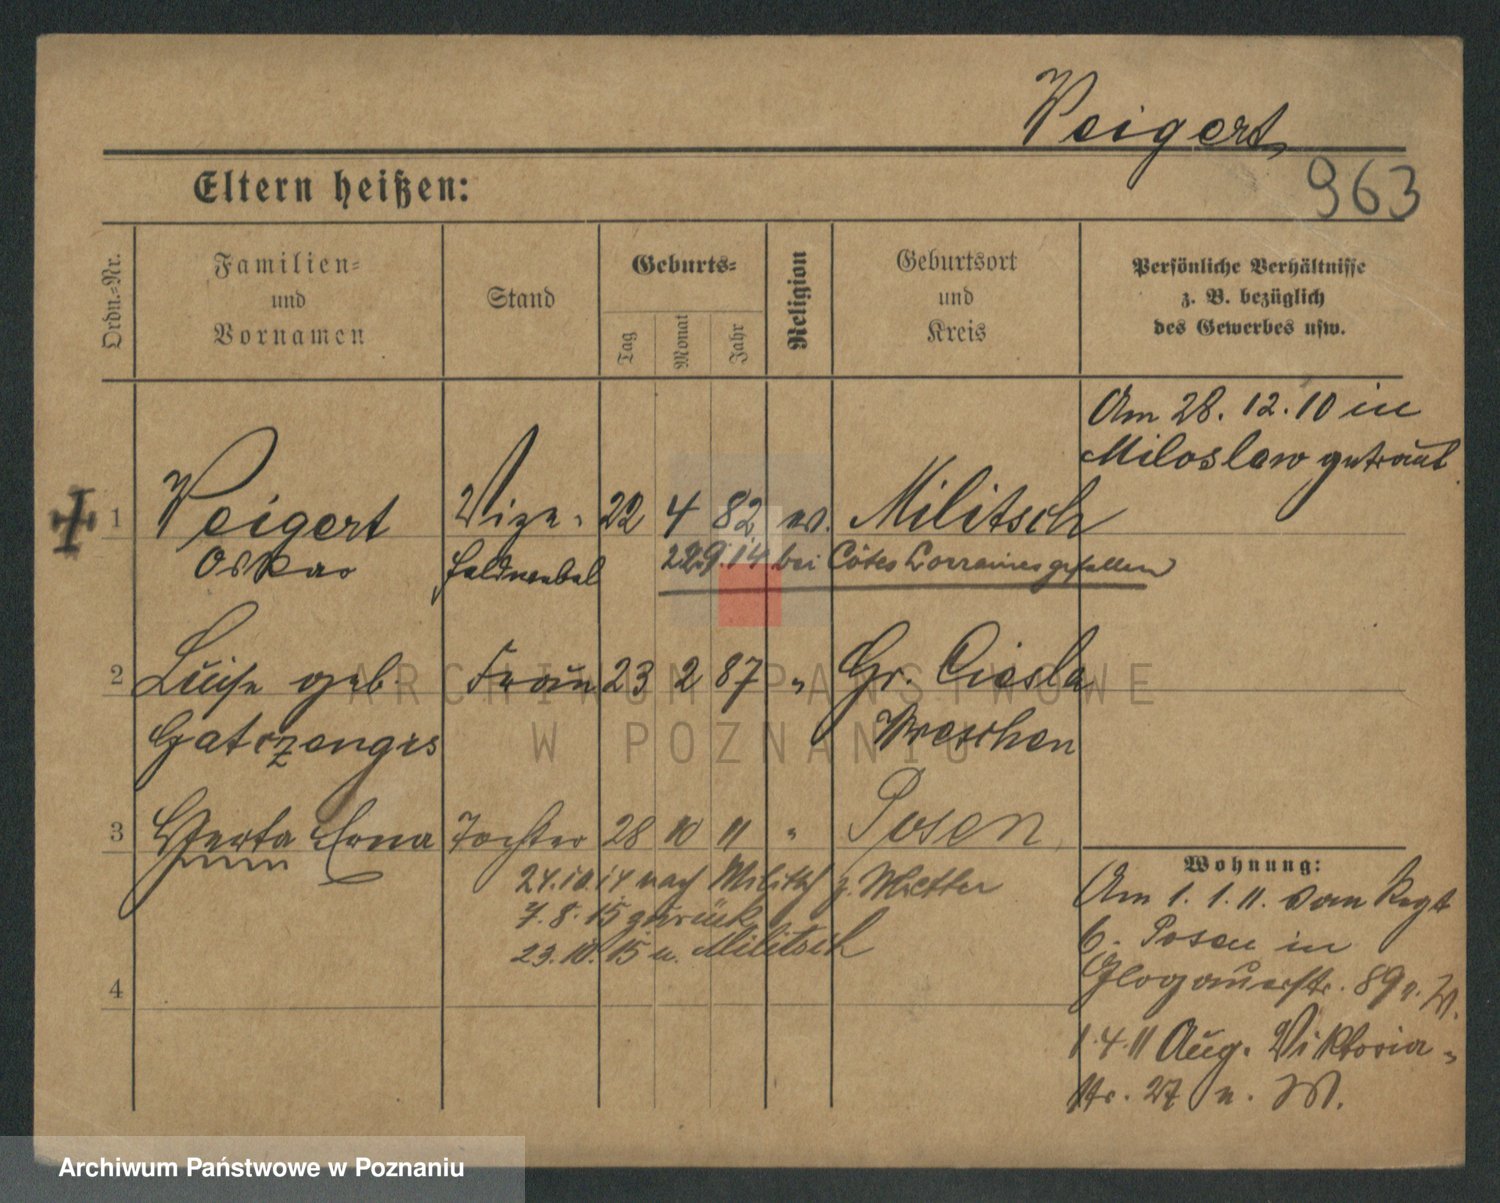 Weigert
963
Eltern heißen:
Ordn.-Nr.
Familien-
und
Vornamen
Stand
Geburts-
Tag
Monat
Jahr
Religion
Geburtsort
und
Kreis
Persönliche Verhältnisse
z. B. bezüglich
des Gewerbes usw.
Am 28. 12. 10 in
Miloslaw getraut
1 Weigert Vize- 22 4 82 ev. Militsch
Oskar feldwebel 22.9.14 bei Côtes Lorraines gefallen
2 Luise geb. Frau 23 2 87 " Gr. Ciesla
Wreschen
3 Herta Erna Tochter 28 10 11 " Posen
24.10.14 nach Militsch z. Mutter
7.8.15 zurück
23.10.15 n. Militsch
4
Wohnung:
Am 1. 1. 11. vom Regt
6. Posen in
Glogauerstr. 89
1.4.11 Aug. Viktoria-
str. 27 n.
ARCHIWUM PAŃSTWOWE
W POZNANIU
Archiwum Państwowe w Poznaniu